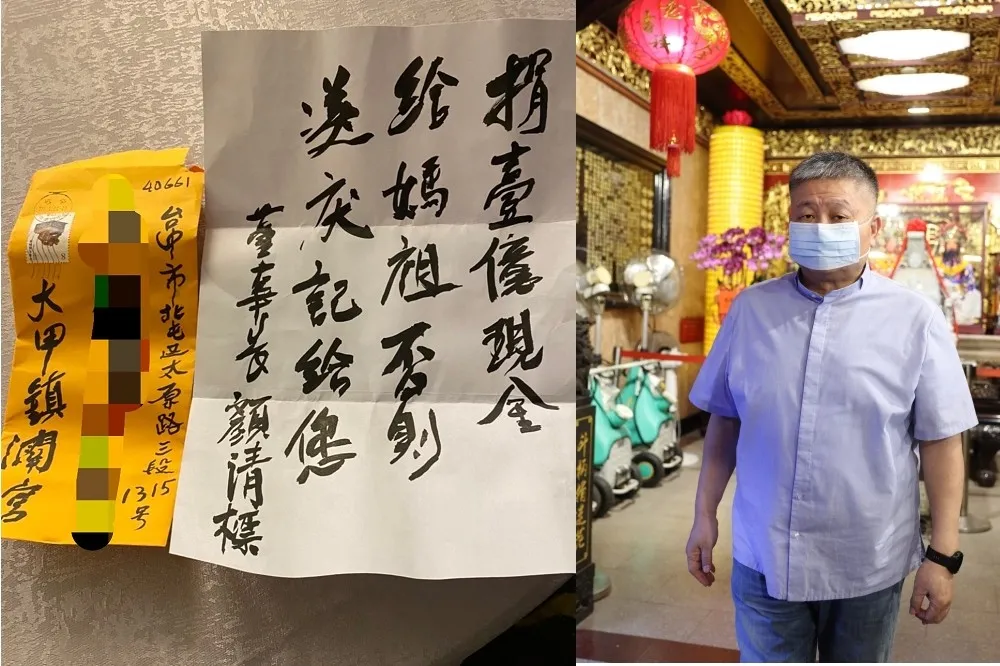 捐壹億現金
給媽祖否則
送庆記給您
董事長 顏清標
40661
台中市北屯区太原路三段
1315号
大甲鎮瀾宮